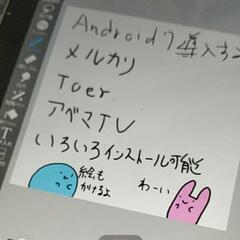 Android 7 導入すみ
メルカリ
Toer.
アベマTV
いろいろインストール可能
絵も
かけるよ
わーい